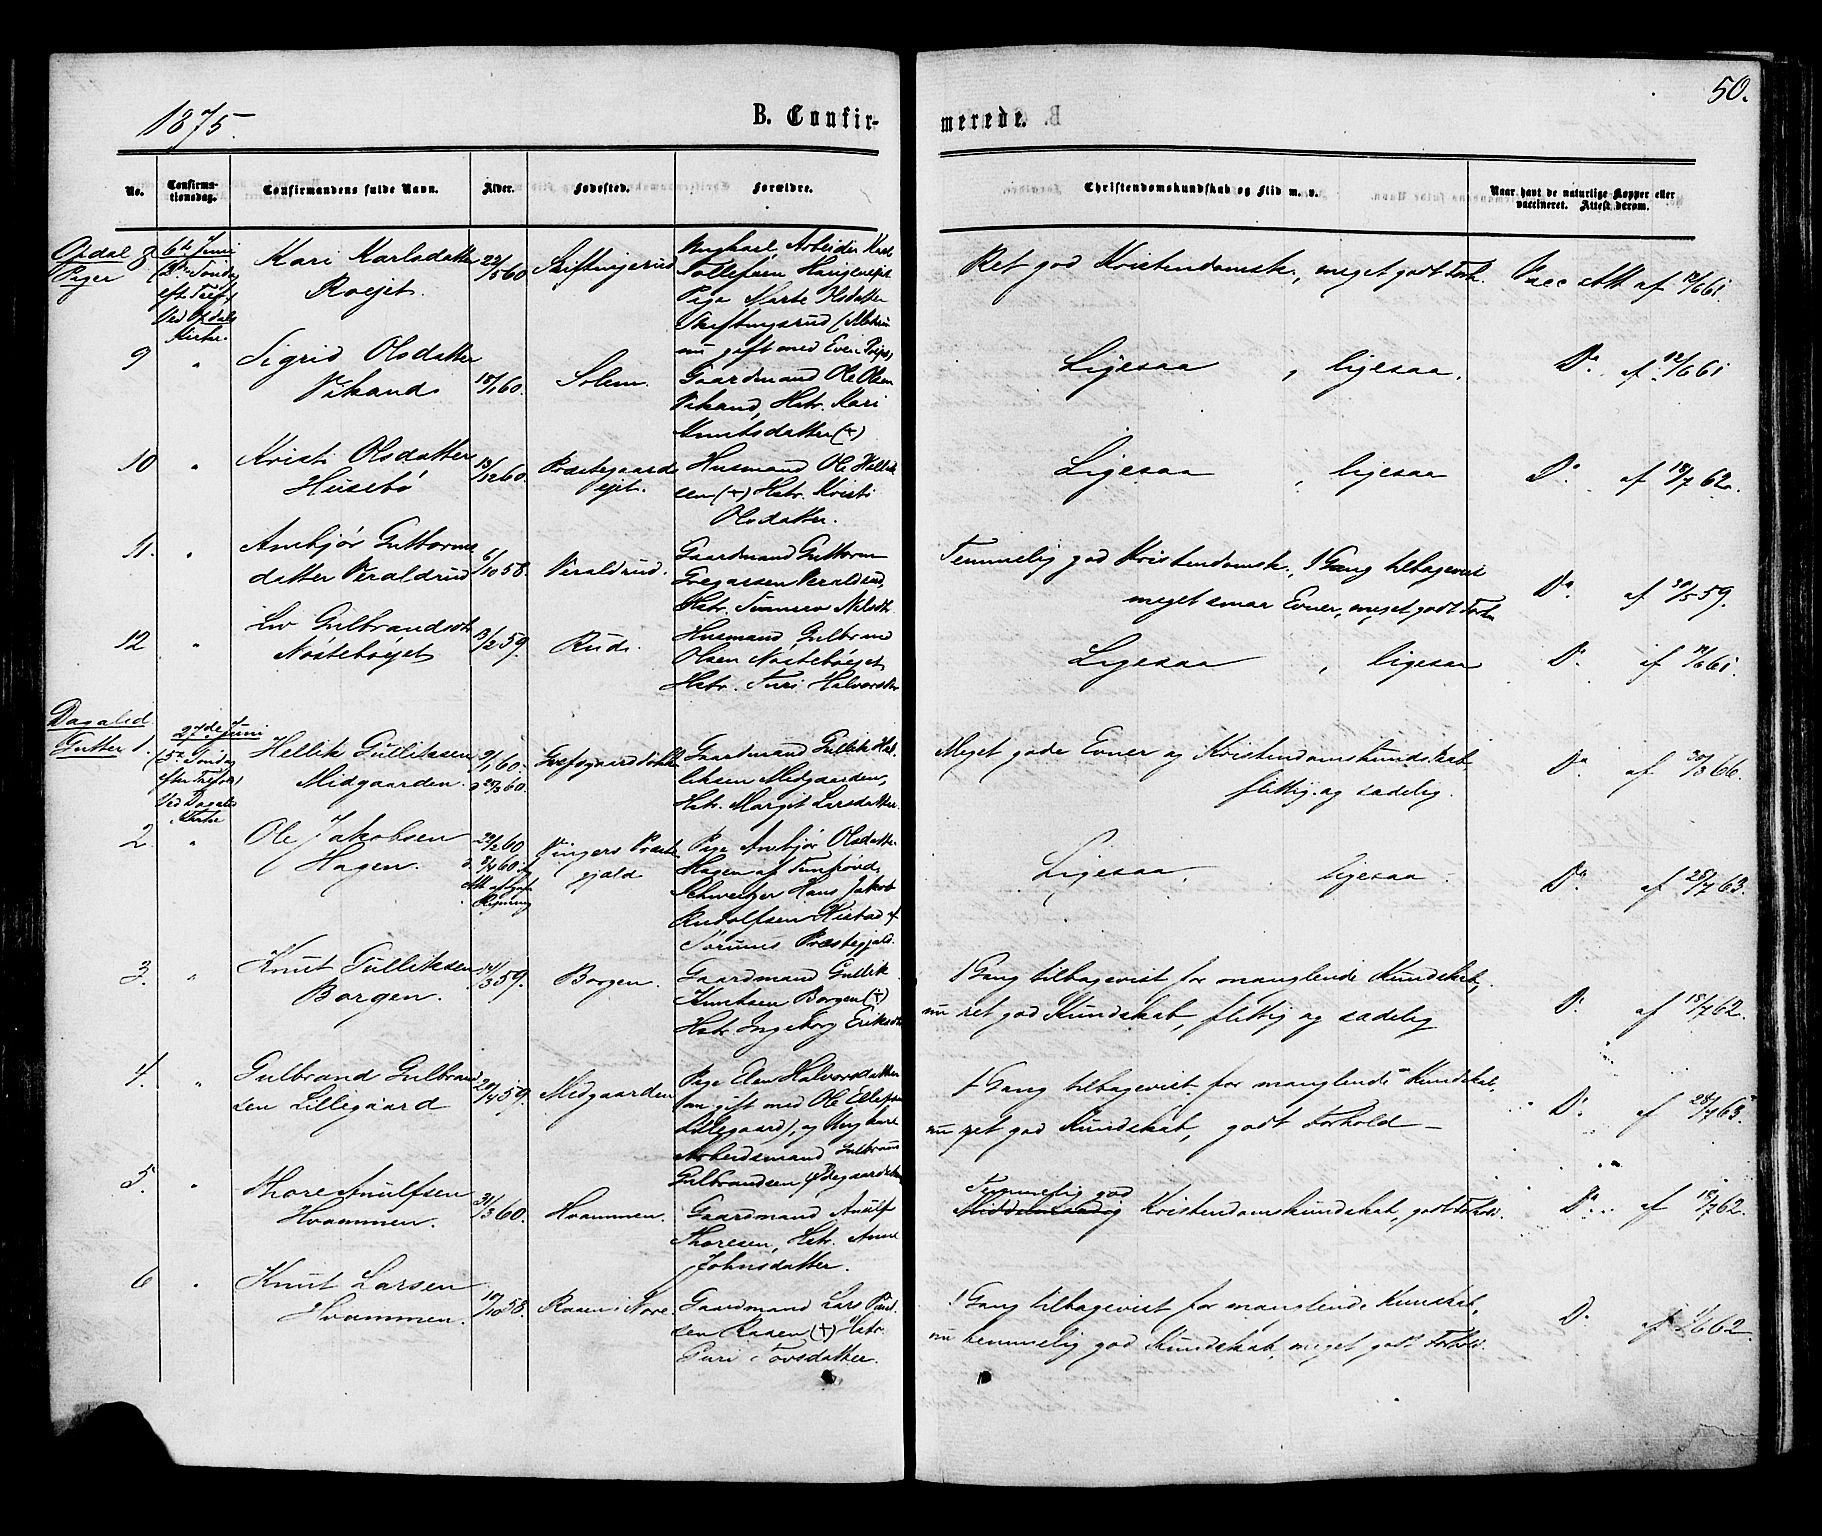 50.
1875.
B. Confir-
merede.
No.
Confirma-
tionsdag.
Confirmandens fulde Navn.
Alder.
Fødested.
Forældre.
Christendomskundskab og Flid m. v.
Naar havt de naturlige Kopper eller
vaccineret. Attest derom.
Opdal
Piger
8
6te Juni
(2den Søndag
efter Tref.)
Ved Opdals
Kirke.
Kari Karlsdatter
Roejet.
22/5 60
Skiftingsrud
Ungkarl, Arbeider Karl
Tollefsen
Pige Marte Olsdatter
Skiftingsrud
nu gift med Even
Ret god Kristendomsk., meget godt Forh.
Vacc. Att. af 12/6 61
9
"
Sigrid Olsdatter
Vikand
18/1 60.
Solem.
Gaardmand Ole Olsen
Vikand, Hstr. Kari
Knutsdatter (+)
Ligesaa , ligesaa.
Do. af 12/6 61
10
"
Kristi Olsdatter
Husebø
13/12 60.
Præstegaards
ejet.
Husmand Ole Hellik
sen (+) Hstr. Kristi
Olsdatter.
Ligesaa , ligesaa
Do. af 18/7 62.
11.
"
Anbjør Guttorms
datter Veraldrud
6/10 58.
Veraldrud.
Gaardmand Guttorm
Gregassen Veraldrud,
Hstr. Nilsdtr.
Temmelig god Kristendomsk., 1 Gang tilbagevist
meget smaa Evner, meget godt Forh.
Do. af 30/5 59.
12
"
Liv Gulbrandsdtr
Nøstebøejet
13/2 59.
Rud.
Husmand Gulbrand
Olsen Nøstebøejet
Hstr. Turi Halvorsdtr
Ligesaa , ligesaa
Do. af 12/6 61.
Dagalid.
Gutter
1.
27de Juni
(5te Søndag
efter Trefol.)
Ved Dagalid
Kirke
Hellik Gulliksen
Midgaarden.
3/1 60.
d. 25/3 60.
Gaardmand Gullik Hel
liksen Midgaarden,
Hstr. Margit Larsdatter.
Meget gode Evner og Kristendomskundskab
flittig og sædelig.
Do. af 30/3 66.
2.
"
Ole Jakobsen
Hagen.
22/2 60
Vingers Præste
gjæld
Pige Anbjør Olsdatter
Hagen af
Schweitzer Hans Jakob
Rudolfsen Kistad af
Sørums Præstegjæld.
Ligesaa, ligesaa.
Do. af 28/7 63.
3.
"
Knut Gulliksen
Borgen.
14/3 59.
Borgen.
Gaardmand Gullik
Knutsen Borgen (+)
Hstr. Ingeborg Eriksdtr
1 Gang tilbagevist for manglende Kundskab,
nu ret god Kundskab, flittig og sædelig
Do. af 18/7 62.
4.
"
Gulbrand Gulbrand
sen Lillegaard
20/4 59.
Midgaarden
Pige Elen Halvorsdatter
(nu gift med Ole Ellefsen
Lillegaard), og Ungkarl
Arbeidsmand Gulbrand
Gulbrandsen Ødegaardsken
1 Gang tilbagevist for manglende Kundskab,
nu ret god Kundskab, godt Forhold –
Do. af 28/7 63.
5.
"
Thore Anulfsen
Hvammen.
31/3 60.
Hvammen.
Gaardmand Anulf
Thoresen, Hstr. Anne
Johnsdatter.
Temmelig god
Middelmaadig Kristendomskundskab, godt Forhold.
Do. af 18/7 62.
6
"
Knut Larsen
Hvammen.
10/10 58.
Raaen i Nore
Gaardmand Lars Paul
sen Raaen (+) Hstr.
Guri Tovsdatter.
1 Gang tilbagevist for manglende Kunskab,
nu temmelig god Kundskab, meget godt Forhold.
Do. af 1/6 62.